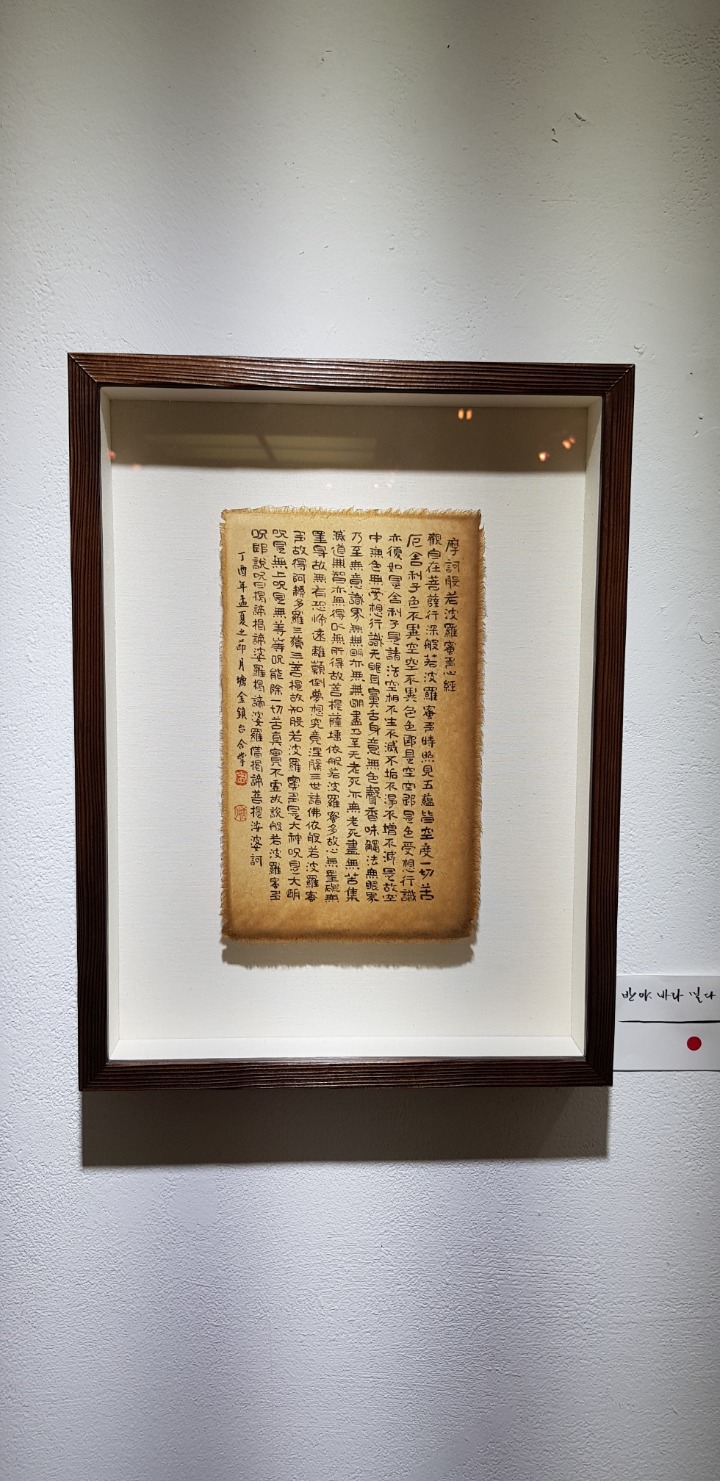 摩訶般若波羅蜜多心經
觀自在菩薩行深般若波羅蜜多時照見五蘊皆空度一切苦
厄舍利子色不異空空不異色色卽是空空卽是色受想行識
亦復如是舍利子是諸法空相不生不滅不垢不淨不增不減是故空
中無色無受想行識无眼耳鼻舌身意無色聲香味觸法無眼界
乃至無意識界無無明亦無無明盡乃至无老死亦無老死盡無苦集
滅道無智亦無得以無所得故菩提薩埵依般若波羅蜜多故心無罣礙無
罣导故無有恐怖遠離顛倒夢想究竟涅槃三世諸佛依般若波羅蜜
多故得阿耨多羅三藐三菩提故知般若波羅蜜多是大神呪是大明
呪是無上呪是無等等呪能除一切苦真實不虛故說般若波羅蜜多
呪卽說呪曰揭諦揭諦婆羅揭諦婆羅僧揭諦菩提娑婆訶
丁酉年孟夏之節月塘金鎮台合掌
반야 바라 밀다